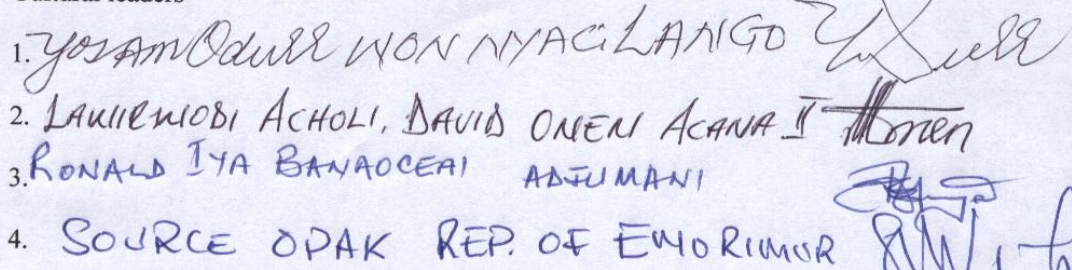 1. Yosam Odurr WON NYACI LANGO
2. LAWIRWODI ACHOLI, DAVID ONEN ACANA II
3. RONALD IYA BANAOCEAI ADJUMANI
4. SOURCE OPAK REP. OF EMORIMOR